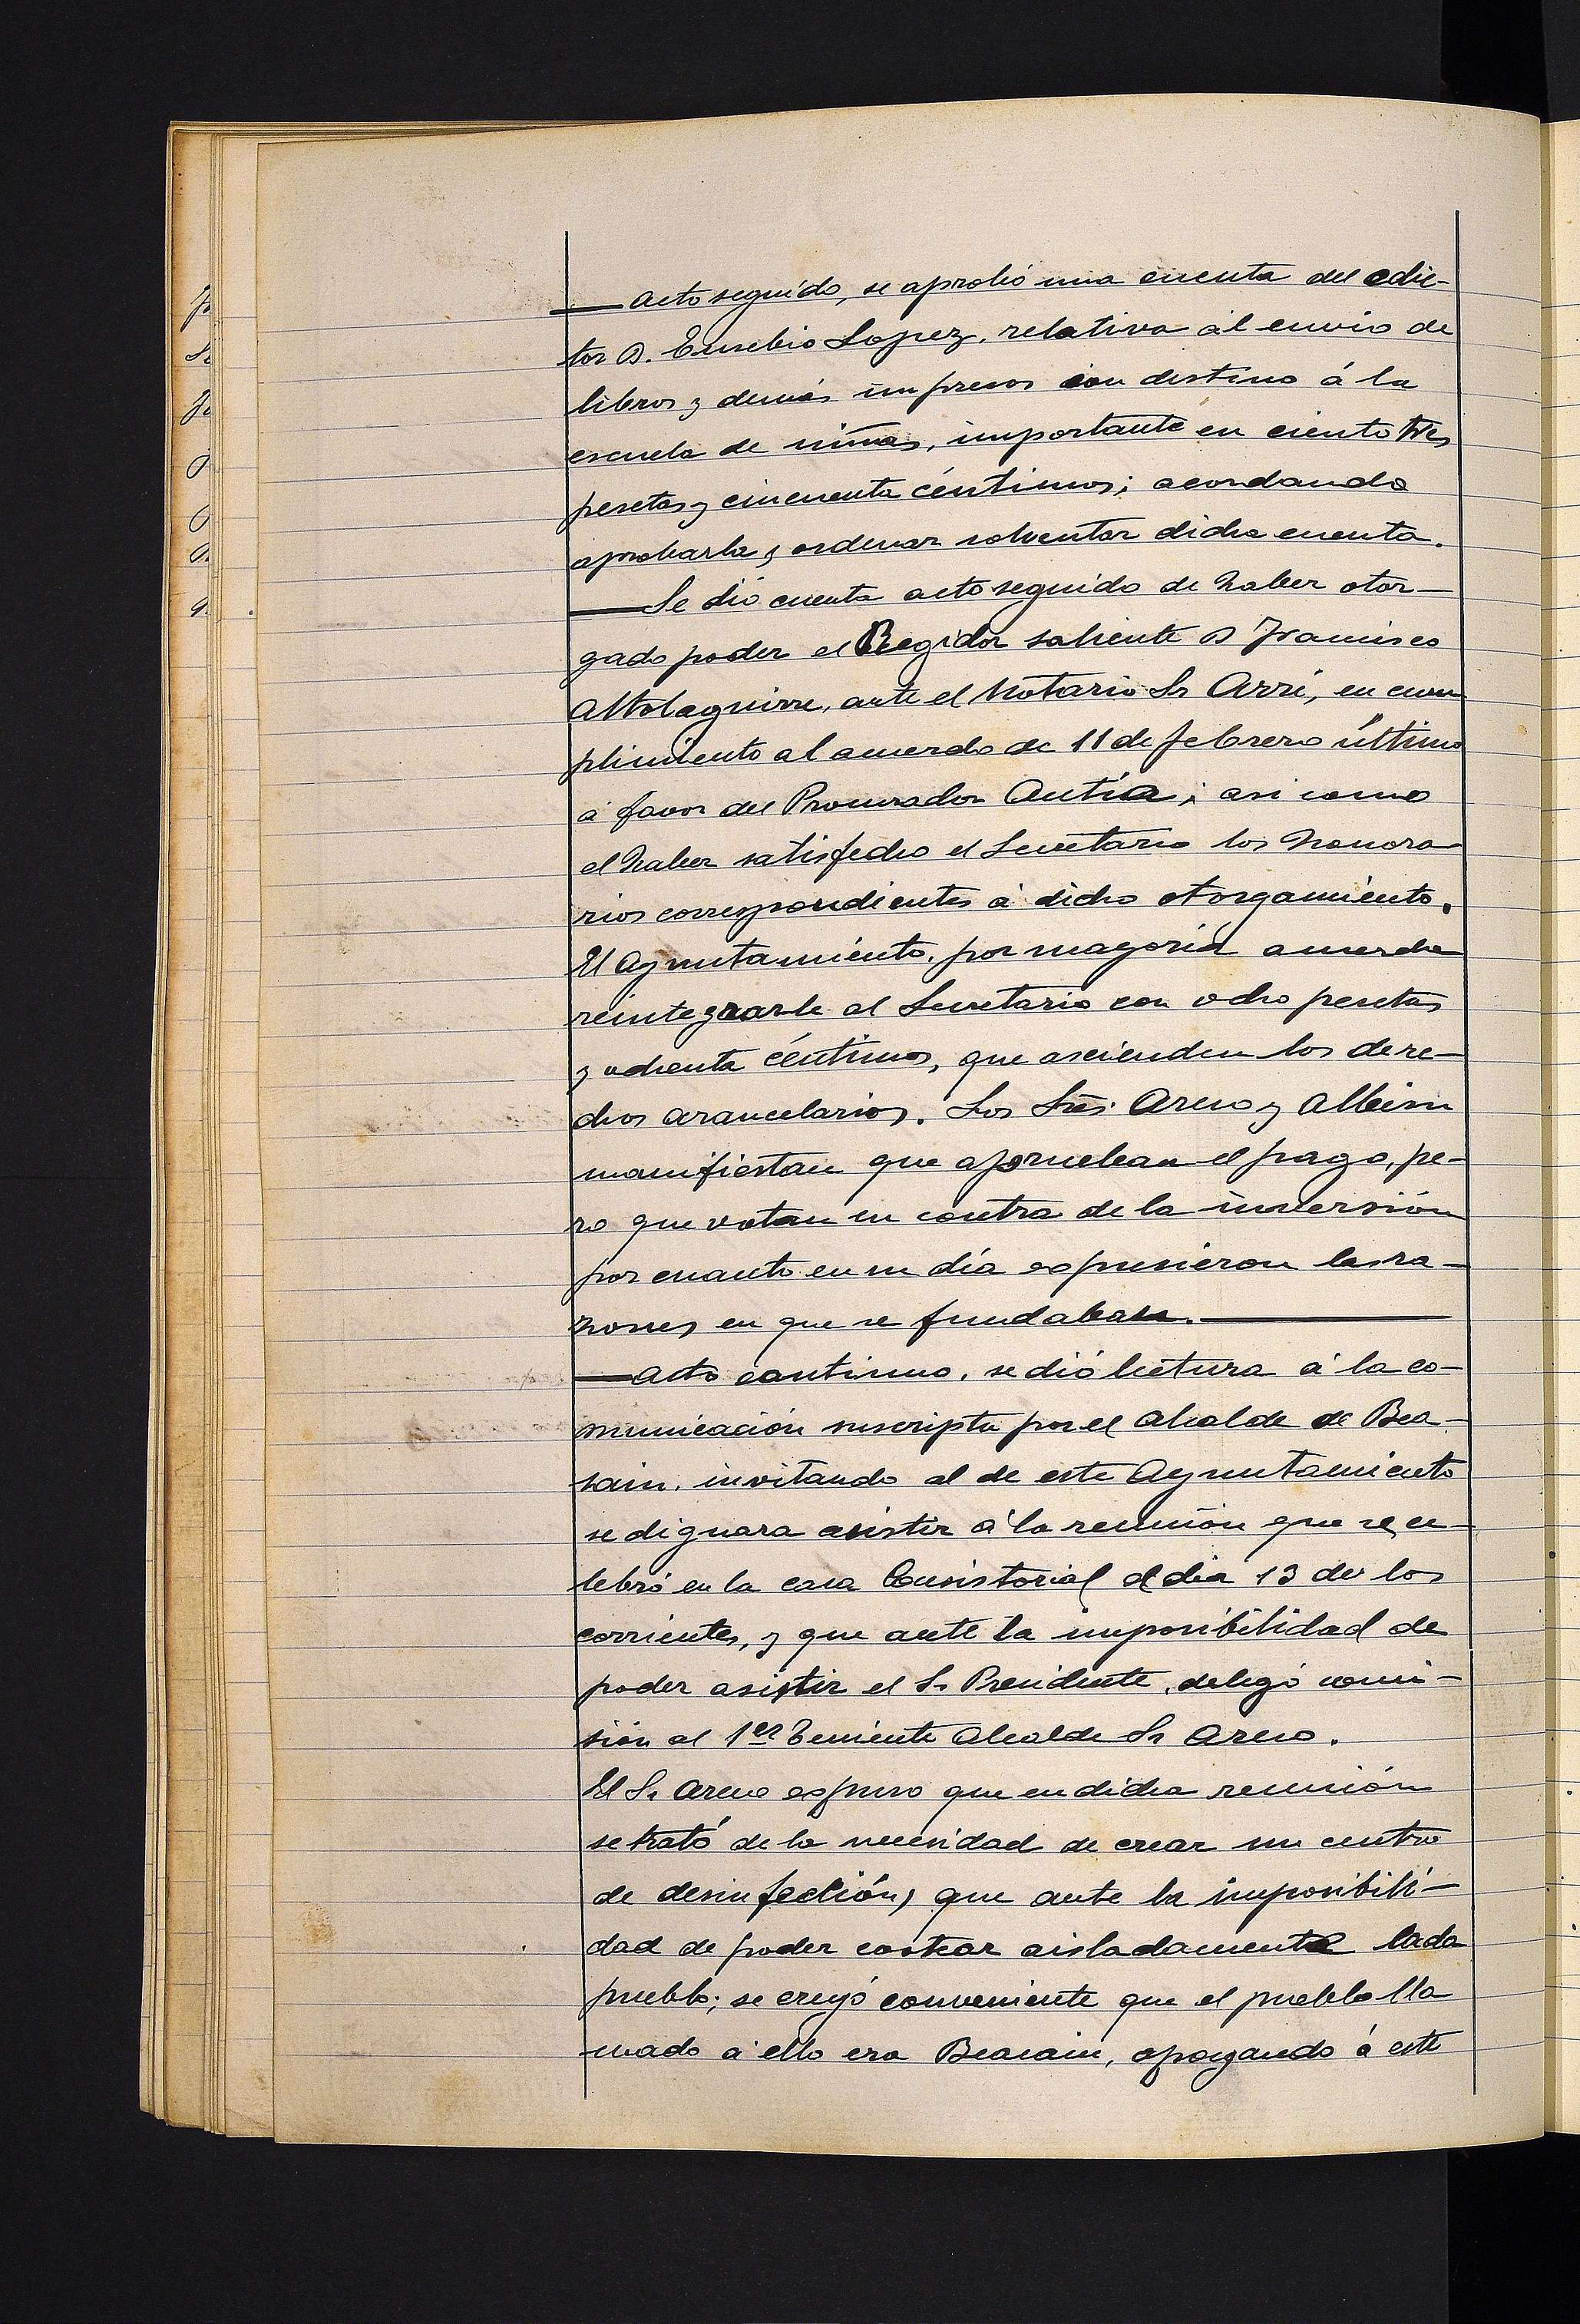 — Acto seguido, se aprobó una cuenta del edic-
tor D. Eusebio Lopez, relativa al envio de
libros y demás impresos con destino á la
escuela de niñas, importante en ciento tres
pesetas y cincuenta céntimos; acordando
aprobarla y ordenar solventar dicha cuenta.
— Se dió cuenta acto seguido de haber otor-
gado poder el Regidor saliente D Francisco
Altolaguirre, ante el Notario Sr Arri, en cum
plimiento al acuerdo de 11 de febrero último
á favor del Procurador Antía; asi como
el haber satisfecho el Secretario los honora
rios correspondientes á dicho otorgamiento.
El Ayuntamiento, por mayoria acuerda
reintegrarle al Secretario con ocho pesetas
y ochenta céntimos, que ascienden los dere-
chos arancelarios. Los Sres. Areno y Albisu
manifiestan que aprueban el pago, pe-
ro que votan en contra de la inversión
por cuanto en su día expusieron las ra-
zones en que se fundaban. —
— Acto continuo, se dió lectura á la co-
municación suscripta por el Alcalde de Bea-
sain, invitando al de este Ayuntamiento
se dignara asistir á la reunión que se ce-
lebró en la casa Consistorial el dia 13 de los
corrientes, y que ante la imposibilidad de
poder asistir el Sr Presidente, delegó comi-
sión al 1er Teniente Alcalde Sr Areno.
El Sr Areno expuso que en dicha reunión
se trató de la necesidad de crear un centro
de desinfección, que ante la imposibili-
dad de poder costear aisladamente cada
pueblo; se creyó conveniente que el pueblo lla
mado á ello era Beasain, apoyando á este